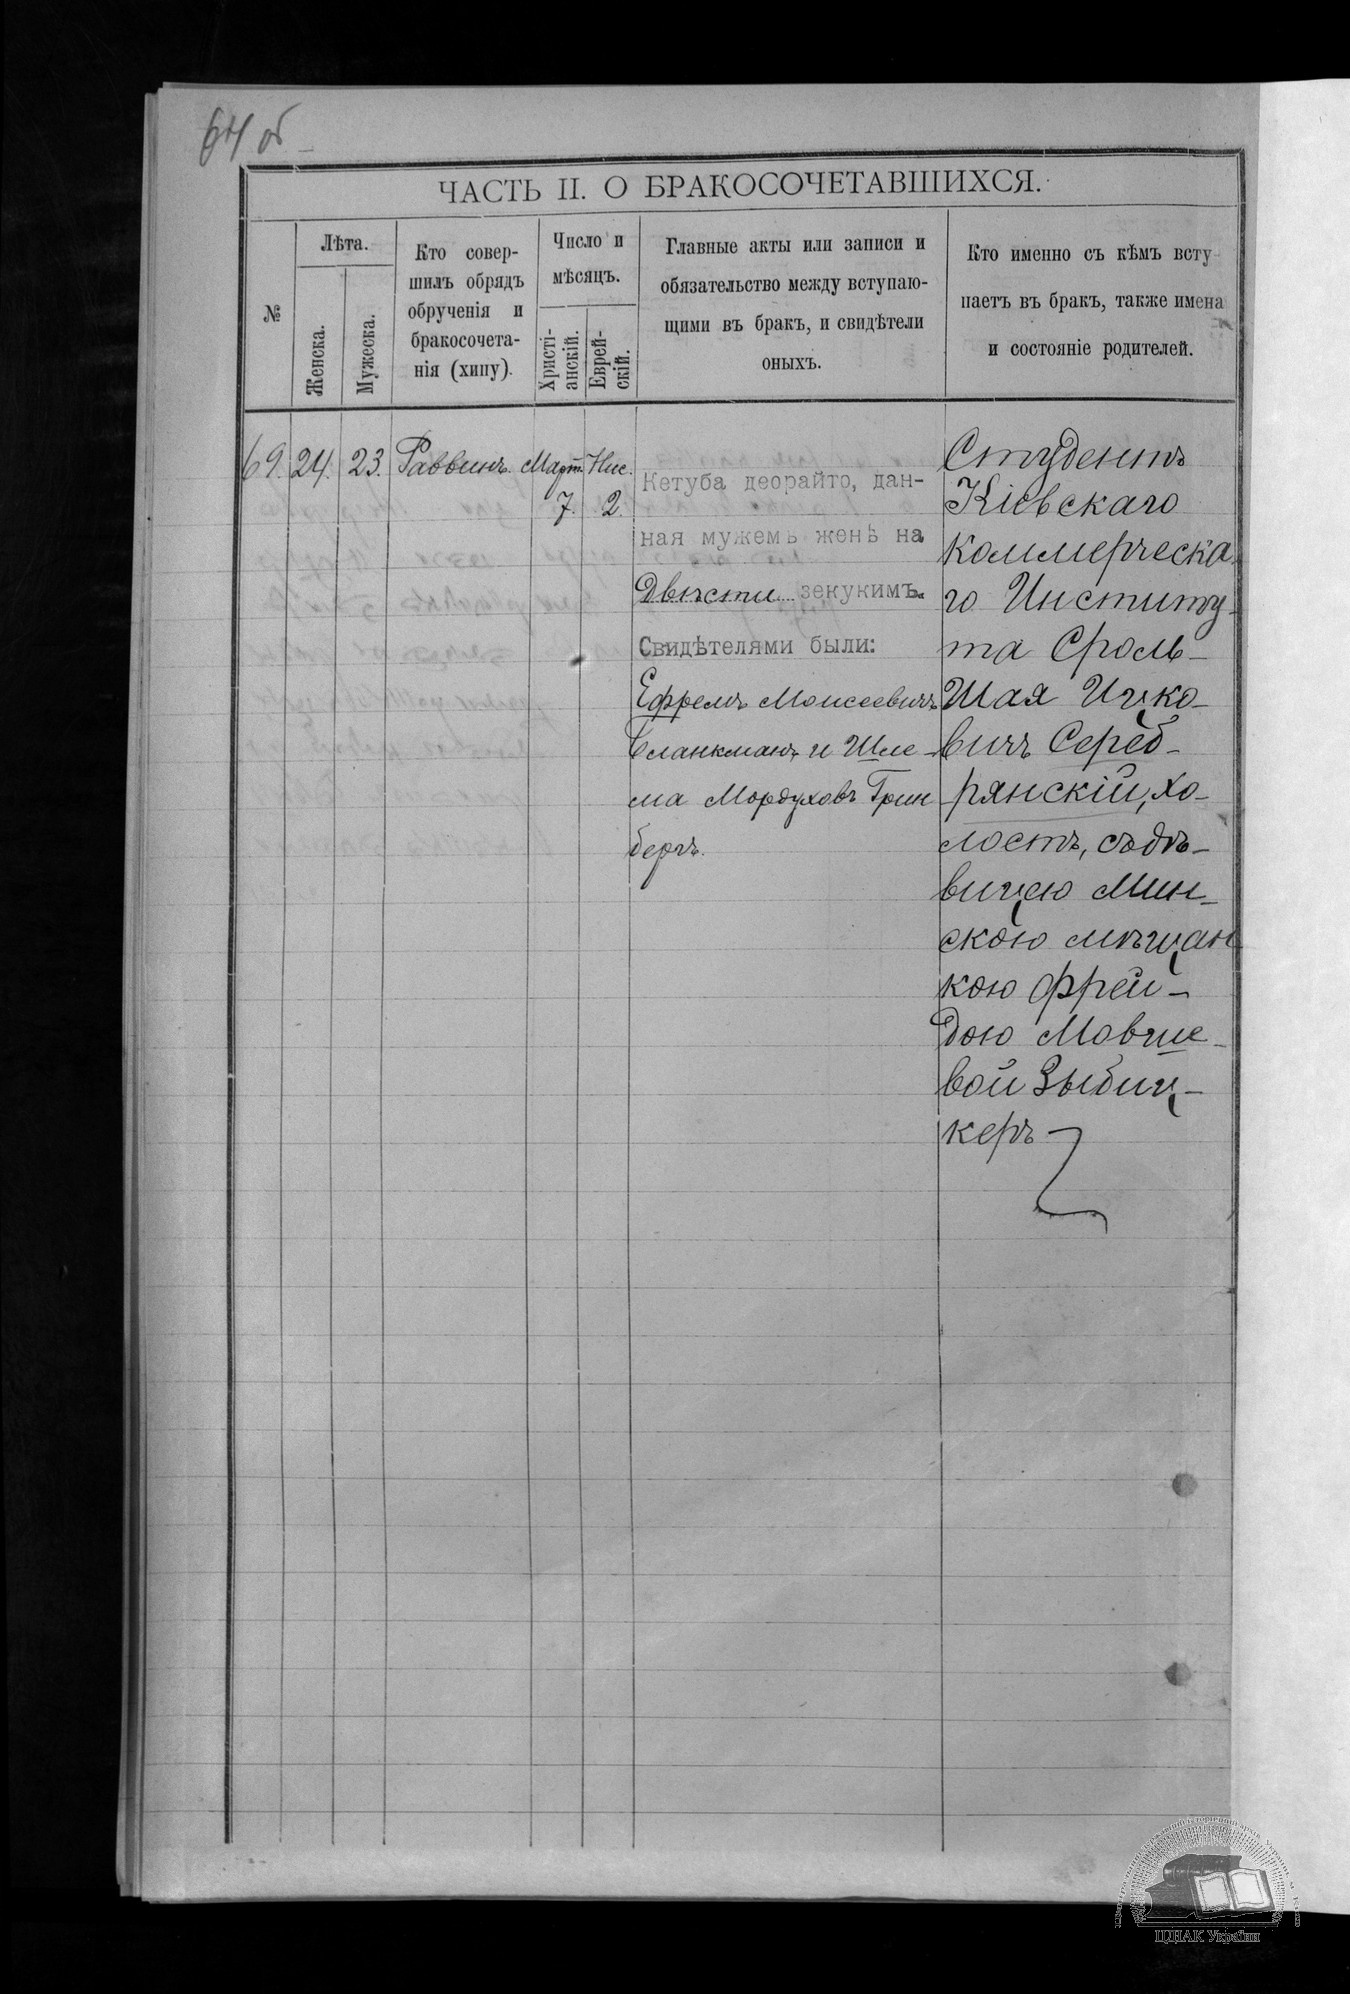 64 об
ЧАСТЬ II. О БРАКОСОЧЕТАВШИХСЯ.
№
Лѣта.
Женска.
Мужеска.
Кто совер-
шилъ обрядъ
обрученія и
бракосочета-
нія (хипу).
Число и
мѣсяцъ.
Христі-
анскій.
Еврей-
скій.
Главные акты или записи и
обязательство между вступаю-
щими въ бракъ, и свидѣтели
оныхъ.
Кто именно съ кѣмъ всту-
паетъ въ бракъ, также имена
и состояніе родителей.
69. 24. 23. Раввинъ. Март. Нис.
7. 2.
Кетуба деорайто, дан-
ная мужемъ женѣ на
Двѣсти зекукимъ.
Свидѣтелями были:
Ефремъ Моисеевичъ
Бланкманъ и Шле-
ма Мордуховъ Грин
бергъ.
Студентъ
Кіевскаго
Коммерческа-
го Институ-
та Сроль-
Шая Ицко-
вичъ Сереб-
рянскій, хо-
лостъ, съ дѣ-
вицею Мин-
скою мѣщан
кою Фрей-
дою Мовше-
вой Зыбиц-
керъ
ЦДІАК України